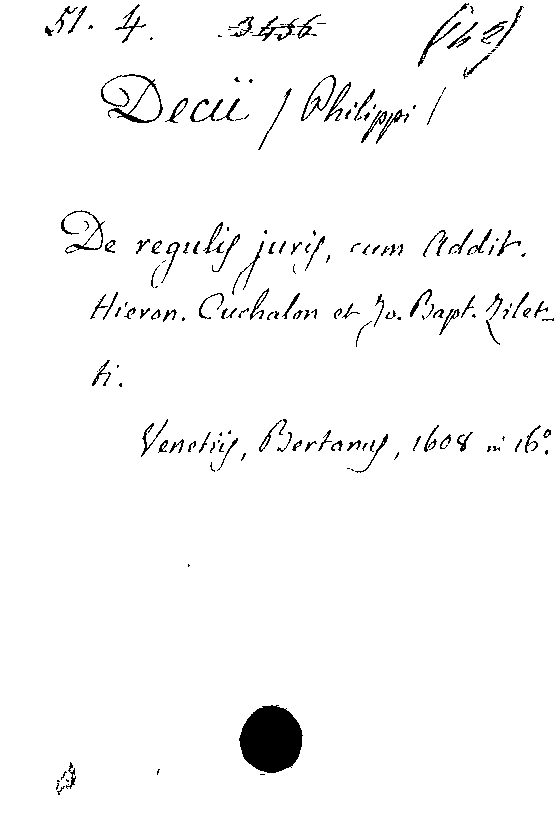 51. 4. 3456
Decii / Philippi /
De regulis juris, cum Addit.
Hieron. Cuchalon et Jo. Bapt. Zilet-
ti.
Venetiis, Bertanus, 1608 in 16°.